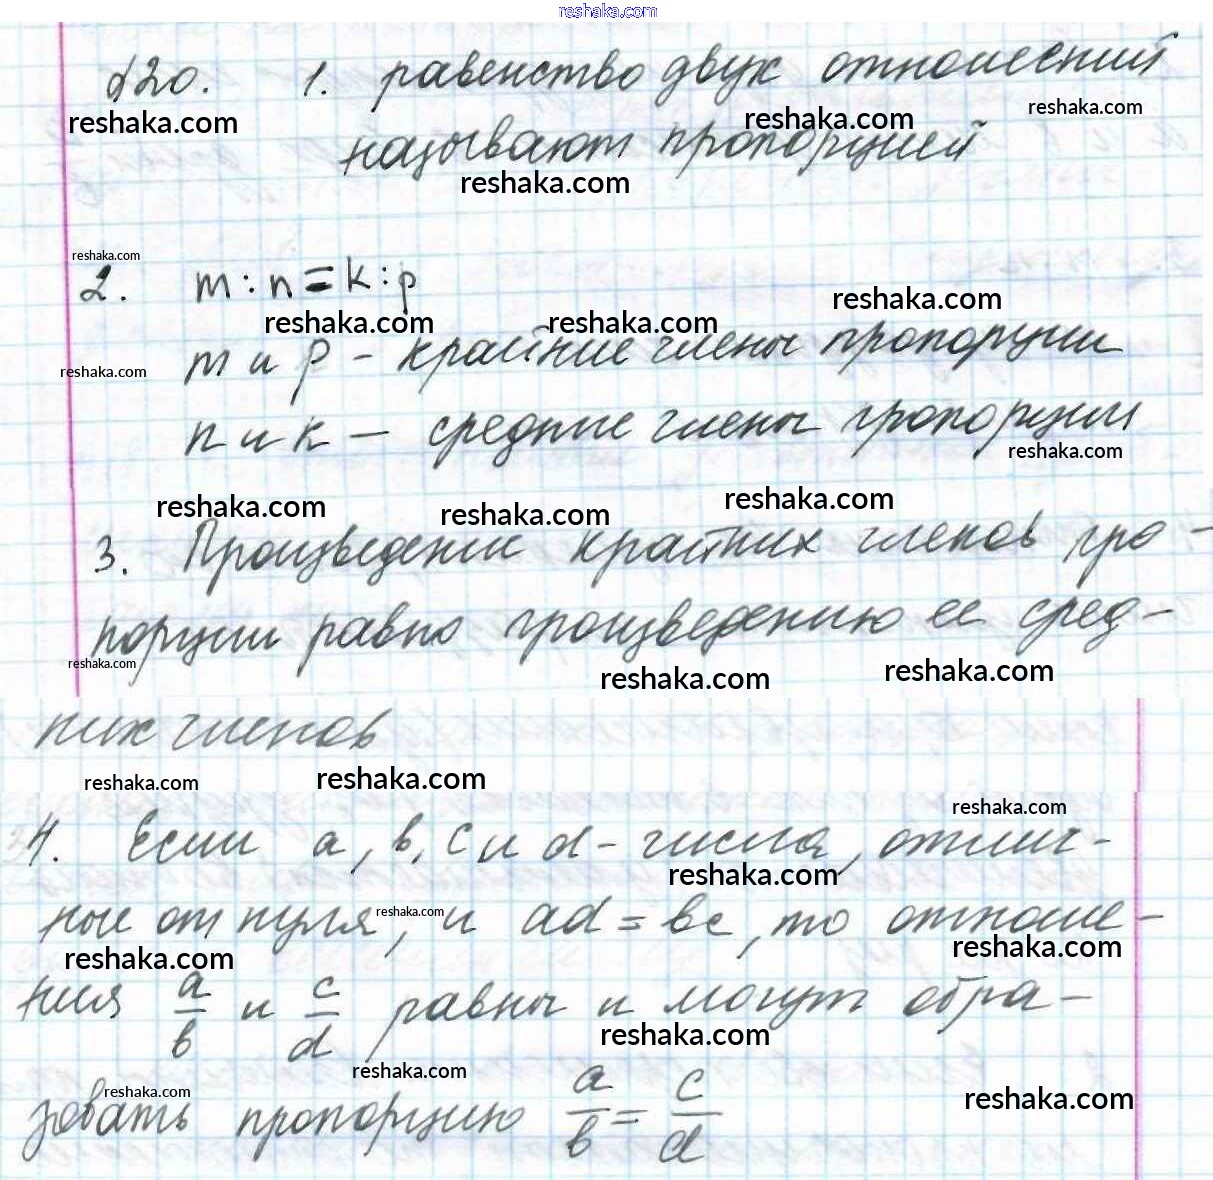 reshaka.com
§20. 1. равенство двух отношений
reshaka.com reshaka.com reshaka.com
называют пропорцией
reshaka.com
reshaka.com
2. m : n = k : p
reshaka.com reshaka.com reshaka.com
m и p – крайние члены пропорции
reshaka.com
n и k – средние члены пропорции
reshaka.com
reshaka.com reshaka.com reshaka.com
3. Произведение крайних членов про-
порции равно произведению ее сред-
reshaka.com reshaka.com reshaka.com
них членов
reshaka.com reshaka.com
reshaka.com
4. Если a, b, c и d – числа, отлич-
reshaka.com
ные от нуля, и ad = bc, то отноше-
reshaka.com
reshaka.com reshaka.com
ния a/b и c/d равны и могут обра-
reshaka.com
reshaka.com
reshaka.com reshaka.com
зовать пропорцию a/b = c/d